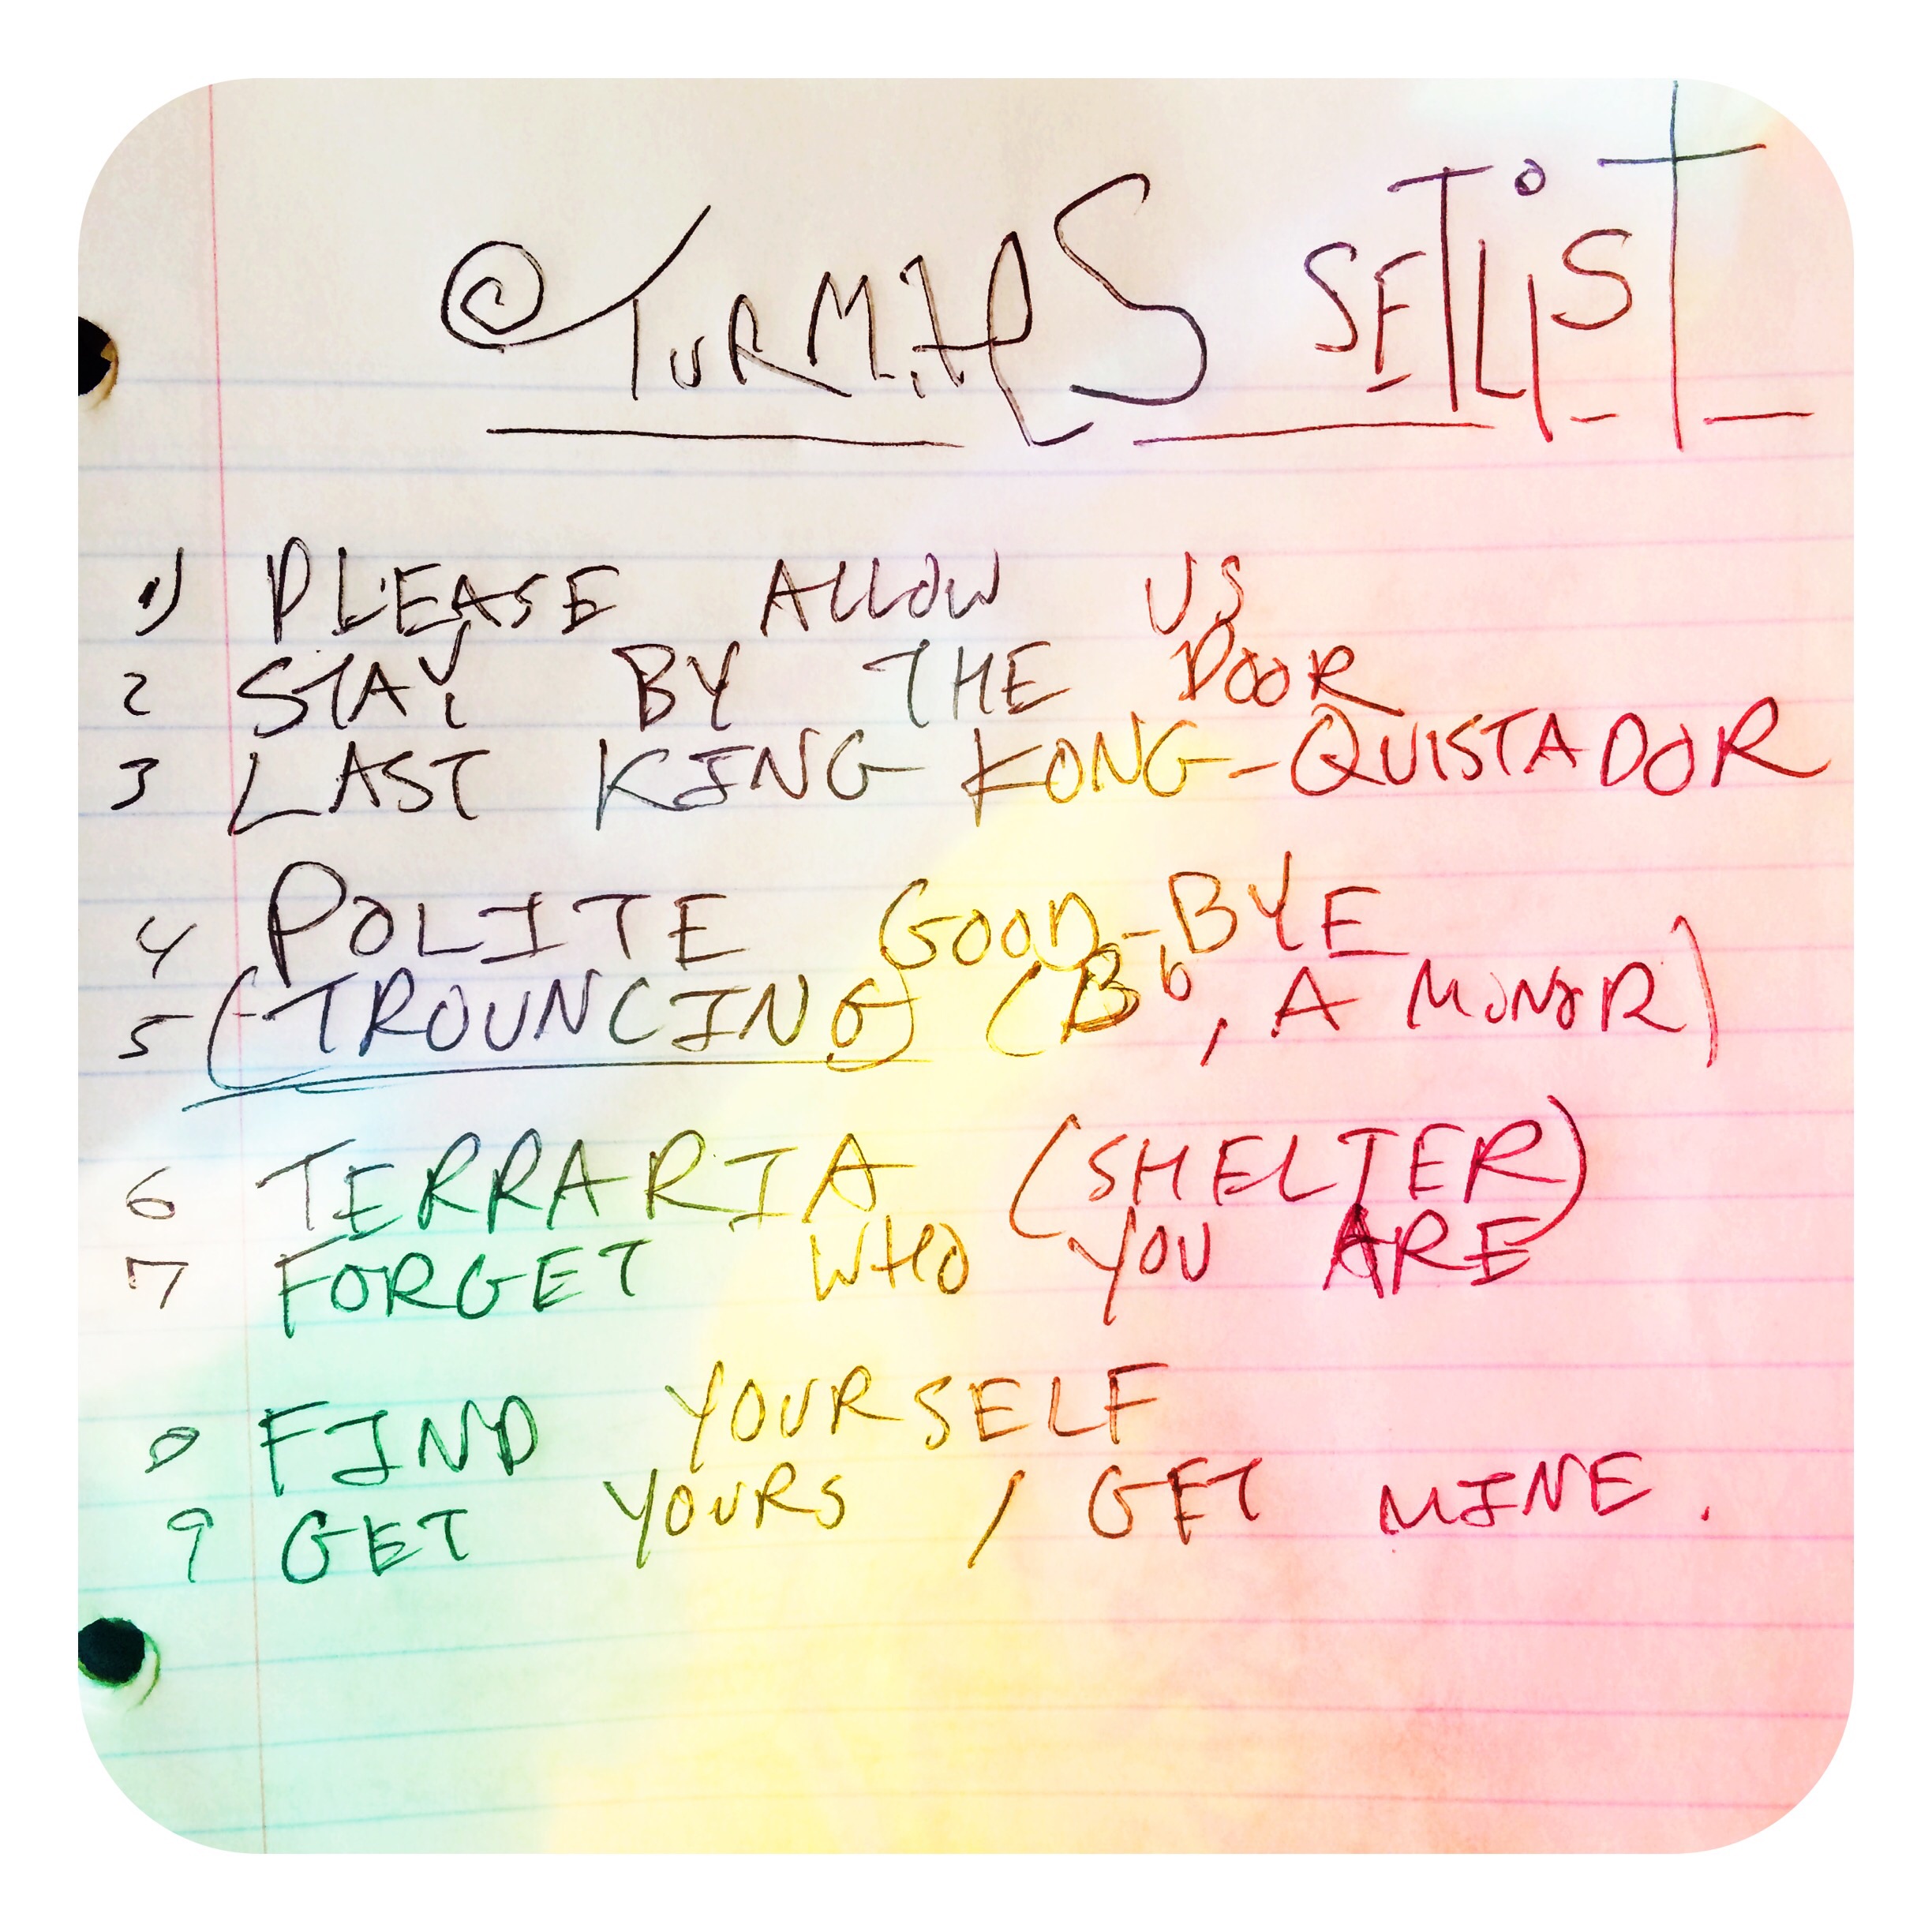 TURMitES SETLiST
1) PLEASE ALLOW US
2 STAY BY THE DOOR
3 LAST KING KONG-QUISTADOR
4 POLITE GOOD-BYE
5 (TROUNCING) (Bb, A MINOR)
6 TERRARIA (SHELTER)
7 FORGET WHO YOU ARE
8 FIND YOURSELF
9 GET YOURS / GET MINE.